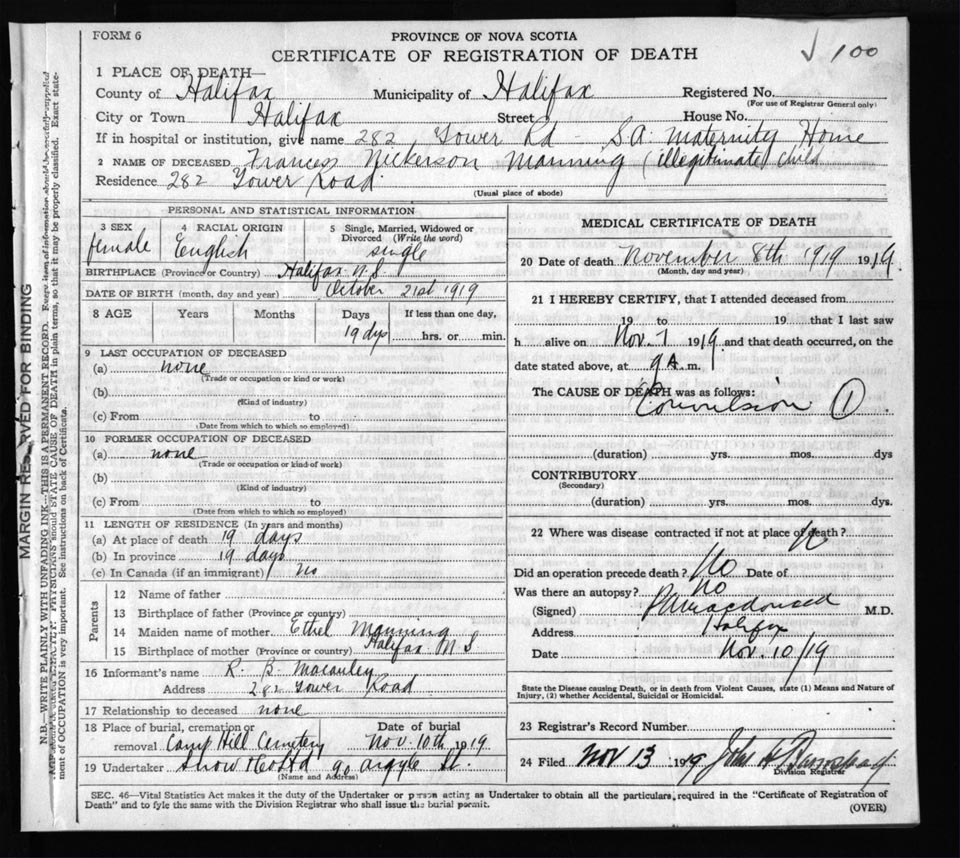 FORM 6
PROVINCE OF NOVA SCOTIA
CERTIFICATE OF REGISTRATION OF DEATH
√ 100
1 PLACE OF DEATH—
County of Halifax Municipality of Halifax Registered No.
(For use of Registrar General only)
City or Town Halifax Street House No.
If in hospital or institution, give name 282 Tower Rd - S.A. Maternity Home
2 NAME OF DECEASED Frances Nickerson Manning (illegitimate) child
Residence 282 Tower Road
(Usual place of abode)
PERSONAL AND STATISTICAL INFORMATION
3 SEX female 4 RACIAL ORIGIN English 5 Single, Married, Widowed or Divorced (Write the word) single
BIRTHPLACE (Province or Country) Halifax N.S.
DATE OF BIRTH (month, day and year) October 21st 1919
8 AGE Years Months Days 19 dys If less than one day, hrs. or min.
9 LAST OCCUPATION OF DECEASED
(a) none
(Trade or occupation or kind or work)
(b)
(Kind of industry)
(c) From to
(Date from which to which so employed)
10 FORMER OCCUPATION OF DECEASED
(a) none
(Trade or occupation or kind of work)
(b)
(Kind of industry)
(c) From to
(Date from which to which so employed)
11 LENGTH OF RESIDENCE (In years and months)
(a) At place of death 19 days
(b) In province 19 days
(c) In Canada (if an immigrant) no
Parents
12 Name of father
13 Birthplace of father (Province or country)
14 Maiden name of mother Ethel Manning
15 Birthplace of mother (Province or country) Halifax N S
16 Informant's name R. B. Macauley
Address 282 Tower Road
17 Relationship to deceased none
18 Place of burial, cremation or removal Camp Hill Cemetery Date of burial Nov. 10th 1919
19 Undertaker Snow & Co Ltd 90 Argyle St.
(Name and Address)
MEDICAL CERTIFICATE OF DEATH
20 Date of death November 8th 1919 1919
(Month, day and year)
21 I HEREBY CERTIFY, that I attended deceased from
19 to 19 that I last saw
h alive on Nov. 7 1919 and that death occurred, on the
date stated above, at 9 A. m.
The CAUSE OF DEATH was as follows:
Convulsion 1
(duration) yrs. mos. dys
CONTRIBUTORY
(Secondary)
(duration) yrs. mos. dys.
22 Where was disease contracted if not at place of death?
Did an operation precede death? No Date of
Was there an autopsy? no
(Signed) M.D.
Address Halifax
Date Nov. 10/19
State the Disease causing Death, or in death from Violent Causes, state (1) Means and Nature of
Injury, (2) whether Accidental, Suicidal or Homicidal.
23 Registrar's Record Number
24 Filed NOV 13 1919 John A
Division Registrar
SEC. 46—Vital Statistics Act makes it the duty of the Undertaker or person acting as Undertaker to obtain all the particulars required in the "Certificate of Registration of
Death" and to fyle the same with the Division Registrar who shall issue the burial permit.
(OVER)
MARGIN RESERVED FOR BINDING
N.B.—WRITE PLAINLY WITH UNFADING INK—THIS IS A PERMANENT RECORD. Every item of information should be carefully supplied
AGE should be stated EXACTLY. PHYSICIANS should STATE CAUSE OF DEATH in plain terms, so that it may be properly classified. Exact state-
ment of OCCUPATION is very important. See instructions on back of Certificate.